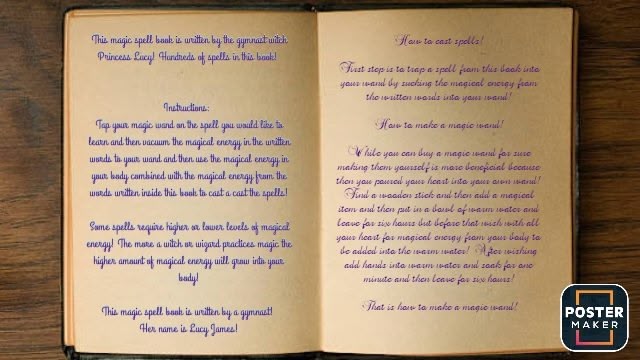 This magic spell book is written by the gymnast witch
Princess Lucy! Hundreds of spells in this book!
Instructions:
Tap your magic wand on the spell you would like to
learn and then vacuum the magical energy in the written
words to your wand and then use the magical energy in
your body combined with the magical energy from the
words written inside this book to cast a cast the spells!
Some spells require higher or lower levels of magical
energy! The more a witch or wizard practices magic the
higher amount of magical energy will grow into your
body!
This magic spell book is written by a gymnast!
Her name is Lucy James!
How to cast spells!
First step is to trap a spell from this book into
your wand by sucking the magical energy from
the written words into your wand!
How to make a magic wand!
While you can buy a magic wand for sure
making them yourself is more beneficial because
then you poured your heart into your own wand!
Find a wooden stick and then add a magical
item and then put in a bowl of warm water and
leave for six hours but before that wish with all
your heart for magical energy from your body to
be added into the warm water! After wishing
add hands into warm water and soak for one
minute and then leave for six hours!
That is how to make a magic wand!
POSTER
MAKER